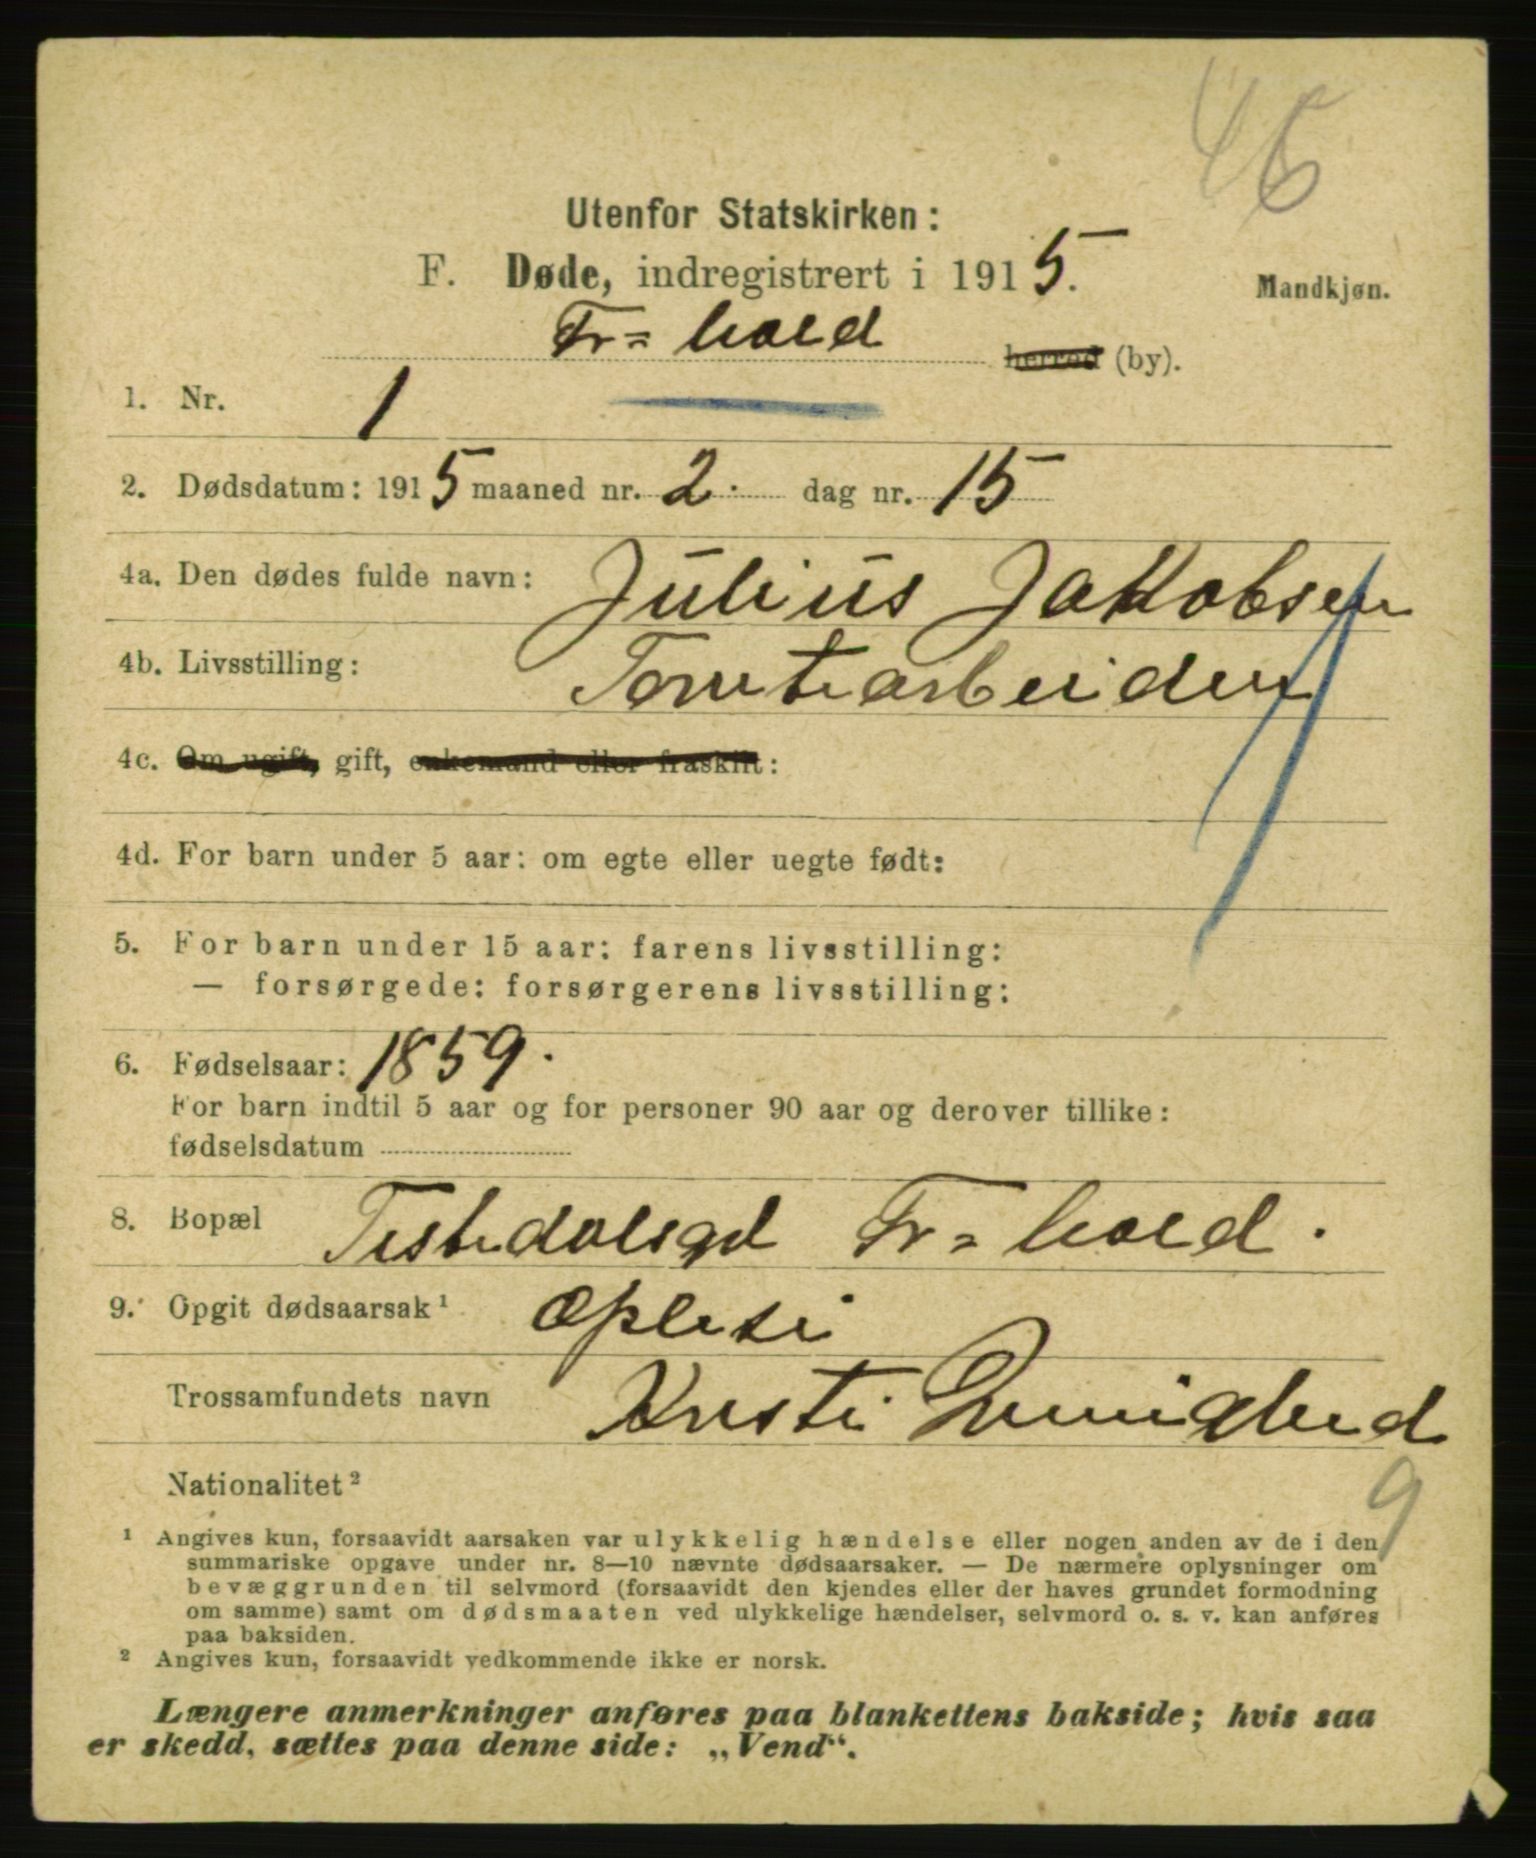 46
Utenfor Statskirken:
F. Døde, indregistrert i 1915.
Mandkjøn.
Fr=hald herred (by).
1. Nr. 1
2. Dødsdatum: 1915 maaned nr. 2. dag nr. 15
4a. Den dødes fulde navn: Julius Jakobsen
4b. Livsstilling: Tomtearbeider
4c. Om ugift, gift, enkemand eller fraskilt:
4d. For barn under 5 aar: om egte eller uegte født:
5. For barn under 15 aar: farens livsstilling:
— forsørgede: forsørgerens livsstilling:
6. Fødselsaar: 1859.
For barn indtil 5 aar og for personer 90 aar og derover tillike:
fødselsdatum
8. Bopæl Tistedalsgd Fr=hald.
9. Opgit dødsaarsak ¹
Trossamfundets navn Kristi Menighed
9
Nationalitet ²
¹ Angives kun, forsaavidt aarsaken var ulykkelig hændelse eller nogen anden av de i den
summariske opgave under nr. 8—10 nævnte dødsaarsaker. — De nærmere oplysninger om
bevæggrunden til selvmord (forsaavidt den kjendes eller der haves grundet formodning
om samme) samt om dødsmaaten ved ulykkelige hændelser, selvmord o. s. v. kan anføres
paa baksiden.
² Angives kun, forsaavidt vedkommende ikke er norsk.
Længere anmerkninger anføres paa blankettens bakside; hvis saa
er skedd, sættes paa denne side: „Vend“.